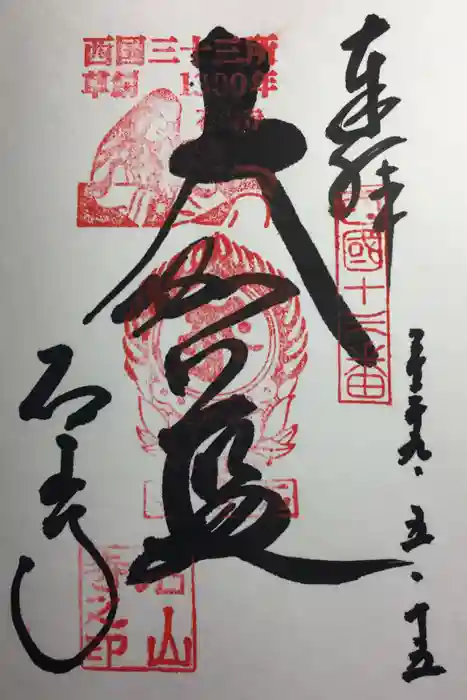 奉拝
西國十三番
平成二十九、五、十五
西国三十三所
草創 1300年
大伽藍
石山寺
石山
之印